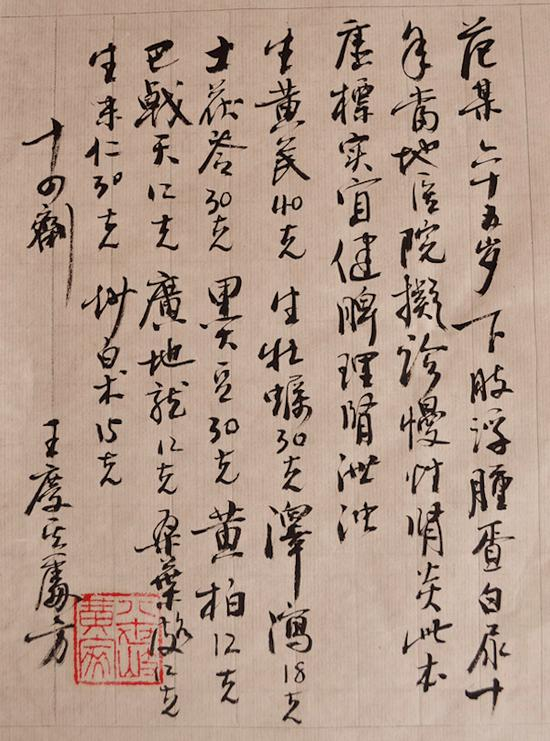 范某六十五岁下肢浮腫蛋白尿十
年當地医院擬诊慢性腎炎此本
虚標实宜健脾理腎泄浊
生黄芪40克 生牡蠣30克 澤瀉18克
土茯苓30克 黑大豆30克 黄柏12克
巴戟天12克 廣地龍12克 桑葉 12克
生米仁30克 炒白术15克
十四劑
王慶其處方